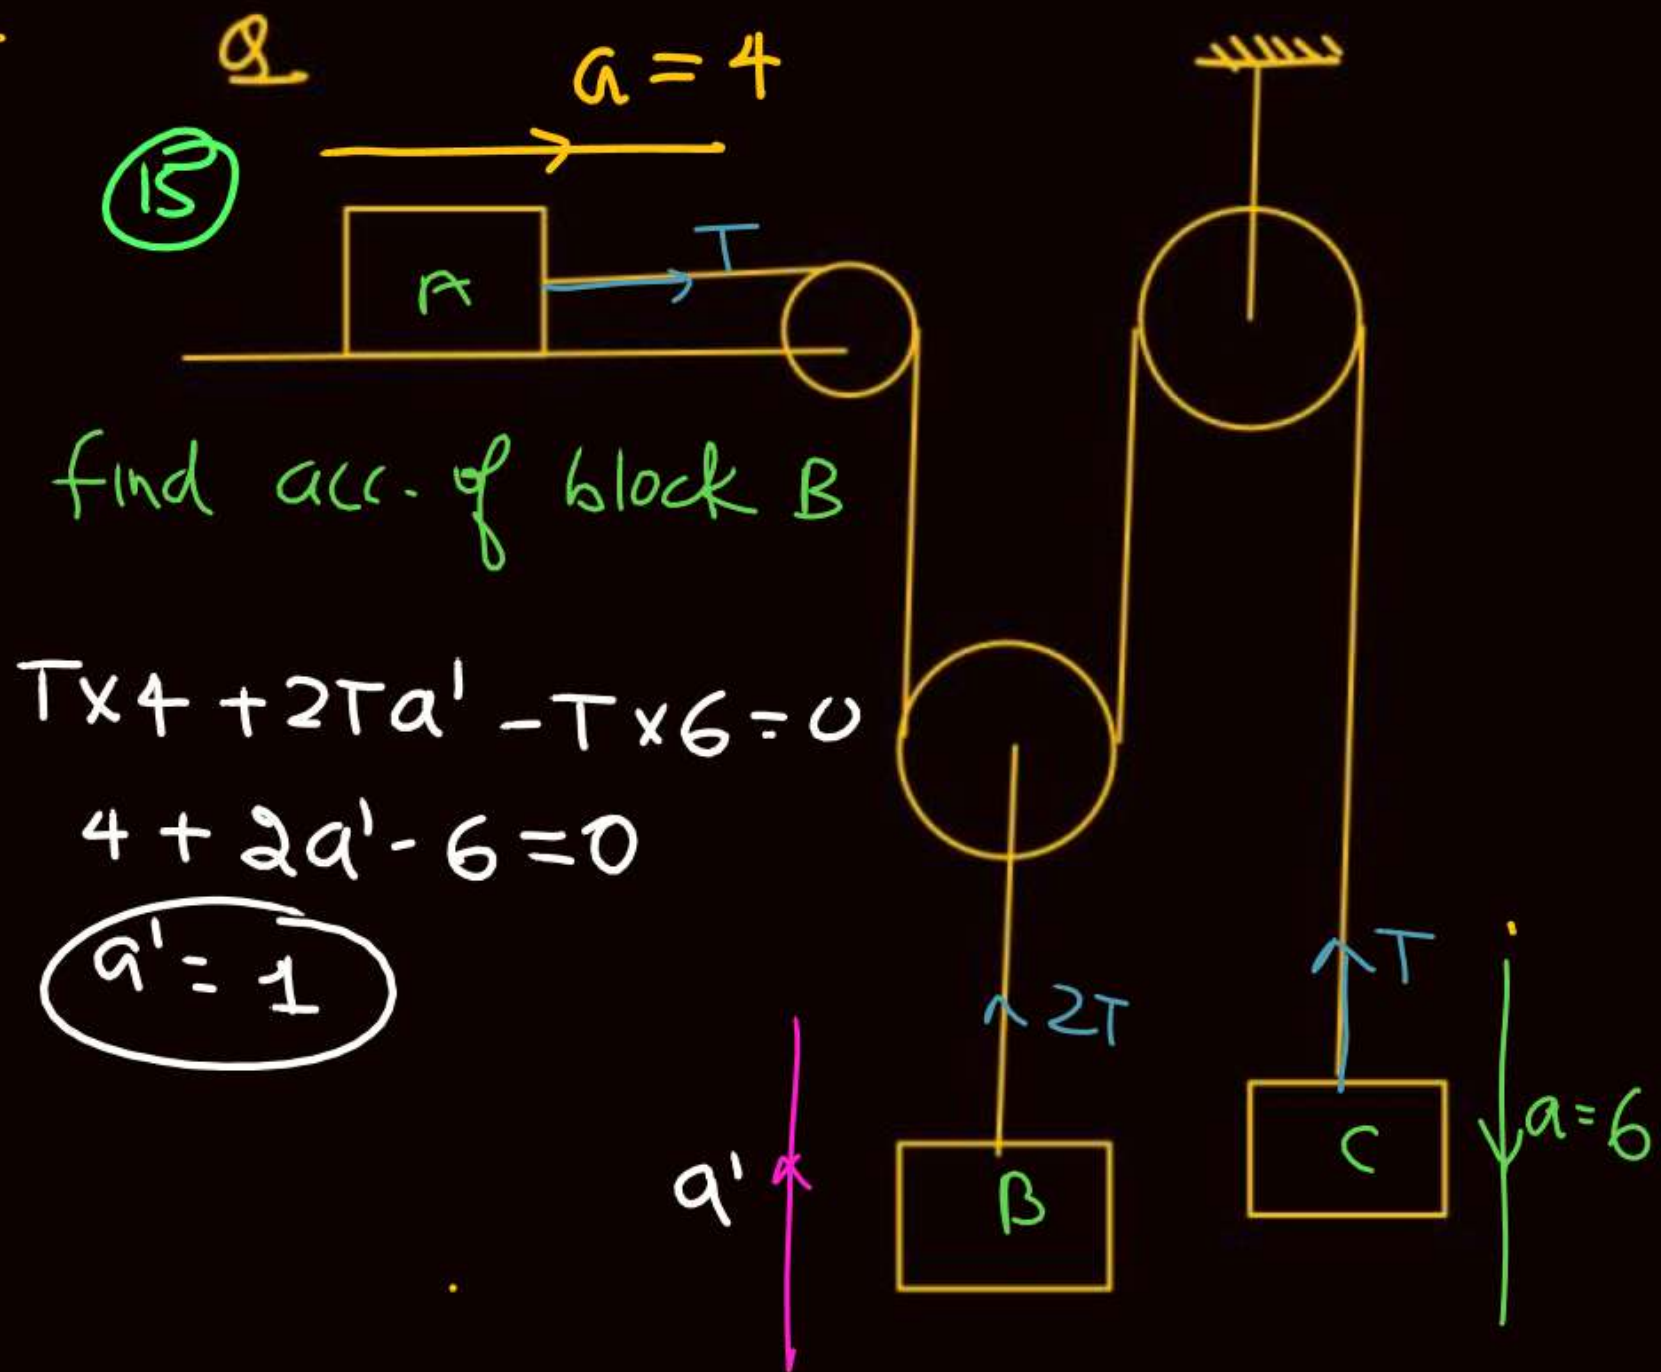 Q
a = 4
15
A
T
find acc. of block B
T×4 + 2Ta' - T×6 = 0
4 + 2a' - 6 = 0
a' = 1
2T
T
a'
B
C
a = 6